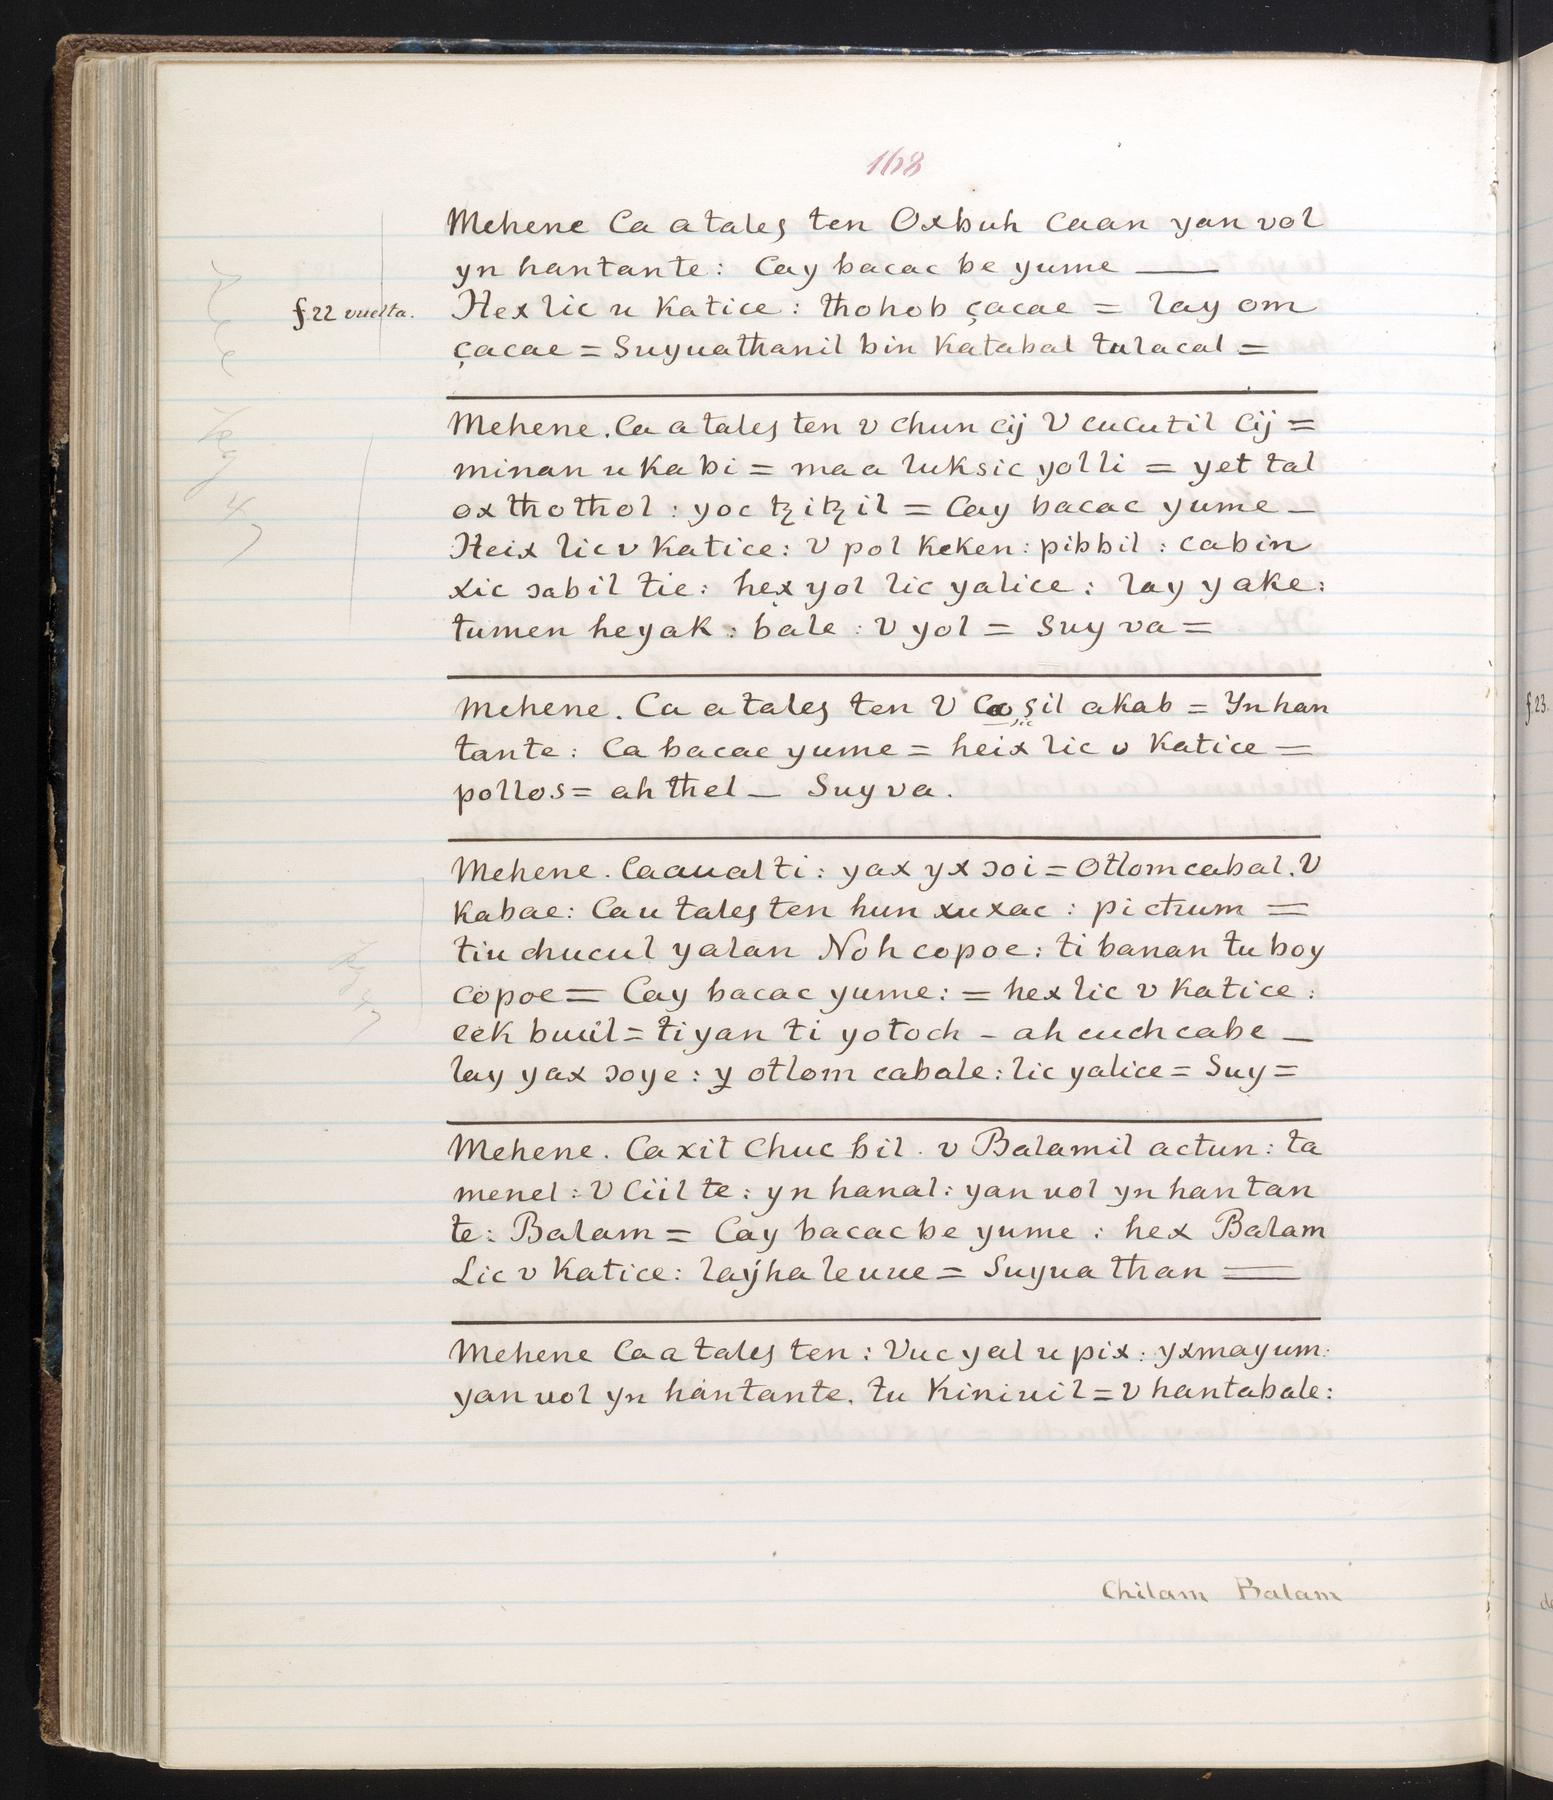 168
Mehene Ca a tales ten Oxbuh Caan yan vol
yn hantante: Cay bacac be yume —
f. 22 vuelta.
Hex lic u Katice: thohob çacae = lay om
çacae = Suyuathanil bin Katabal tulacal =
Mehene. Ca a tales ten v chun cij V cucutil Cij =
minan u Kabi = maa luksic yolli = yet tal
ox thothol: yoc tzitzil = Cay bacac yume —
Heix lic v Katice: V pol keken: pibbil: cabin
xic ɔabil tie: hex yol lic yalice: lay y ake:
tumen heyak: bale: V yol = Suy va =
Mehene. Ca a tales ten V Coo çil akab = Yn han
tante: Ca bacac yume = heix lic v Katice =
pollos = ah thel — Suyva.
Mehene. Caaualti: yax yx ɔoi = Otlomcabal. V
Kabae: Cau tales ten hun xuxac: pictrum =
tiu chucul yalan Noh copoe: ti banan tu boy
copoe = Cay bacac yume: = hex lic v Katice:
eek buuil = tiyan ti yotoch - ah cuchcabe —
lay yax ɔoye: y otlom cabale: lic yalice = Suy =
Mehene. Caxit Chuc bil. v Balamil actun: ta
menel: V Ciil te: yn hanal: yan uol yn hantan
te: Balam = Cay bacac be yume: hex Balam
Lic v Katice: layhaleuue = Suyua than =
Mehene Ca a tales ten: Vuc yal u pix: yxmayum:
yan uol yn hantante. tu Kiniuil = V hantabale:
Chilam Balam
f. 23.